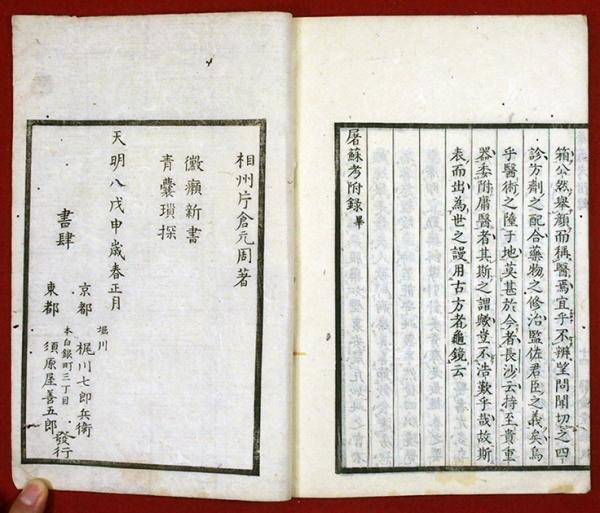 箱公然舉顏而稱醫焉宜乎不辨望問聞切之四
診方劑之配合藥物之修治監佐君臣之義矣烏
乎醫術之陸于地莫甚於今者長沙云持至貴重
器委附庸醫者其斯之謂歟豈不浩歎乎哉故斯
表而出為世之謾用古方者龜鏡云
屠蘇考附録畢
相州片倉元周著
黴癩新書
青囊瑣探
天明八戊申歲春正月
書肆
京都 堀川 梶川七郎兵衛
東都 本白銀町三丁目 須原屋善五郎
發行